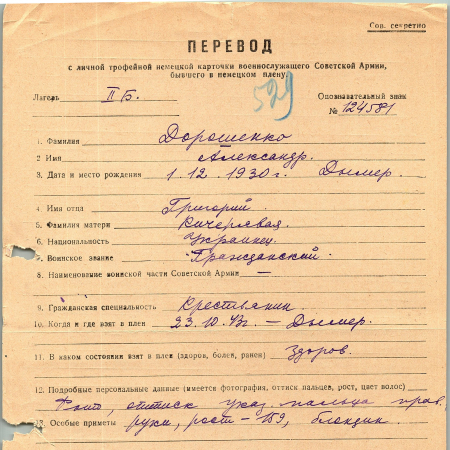 Сов. секретно
ПЕРЕВОД
с личной трофейной немецкой карточки военнослужащего Советской Армии,
бывшего в немецком плену.
529
Лагерь II Б.
Опознавательный знак
№ 124581
1. Фамилия Дорошенко
2 Имя Александр.
3. Дата и место рождения 1. 12. 1930 г. Дымер.
4. Имя отца Григорий.
5. Фамилия матери Кичеревая.
6. Национальность Украинец.
7. Воинское звание Гражданский.
8. Наименование воинской части Советской Армии —
9. Гражданская специальность Крестьянин
10. Когда и где взят в плен 23. 10. 43г. – Дымер.
11. В каком состоянии взят в плен (здоров, болен, ранен) Здоров.
12. Подробные персональные данные (имеется фотография, оттиск пальцев, рост, цвет волос)
Фото, оттиск указ. пальца прав.
13. Особые приметы руки, рост – 159, блондин.